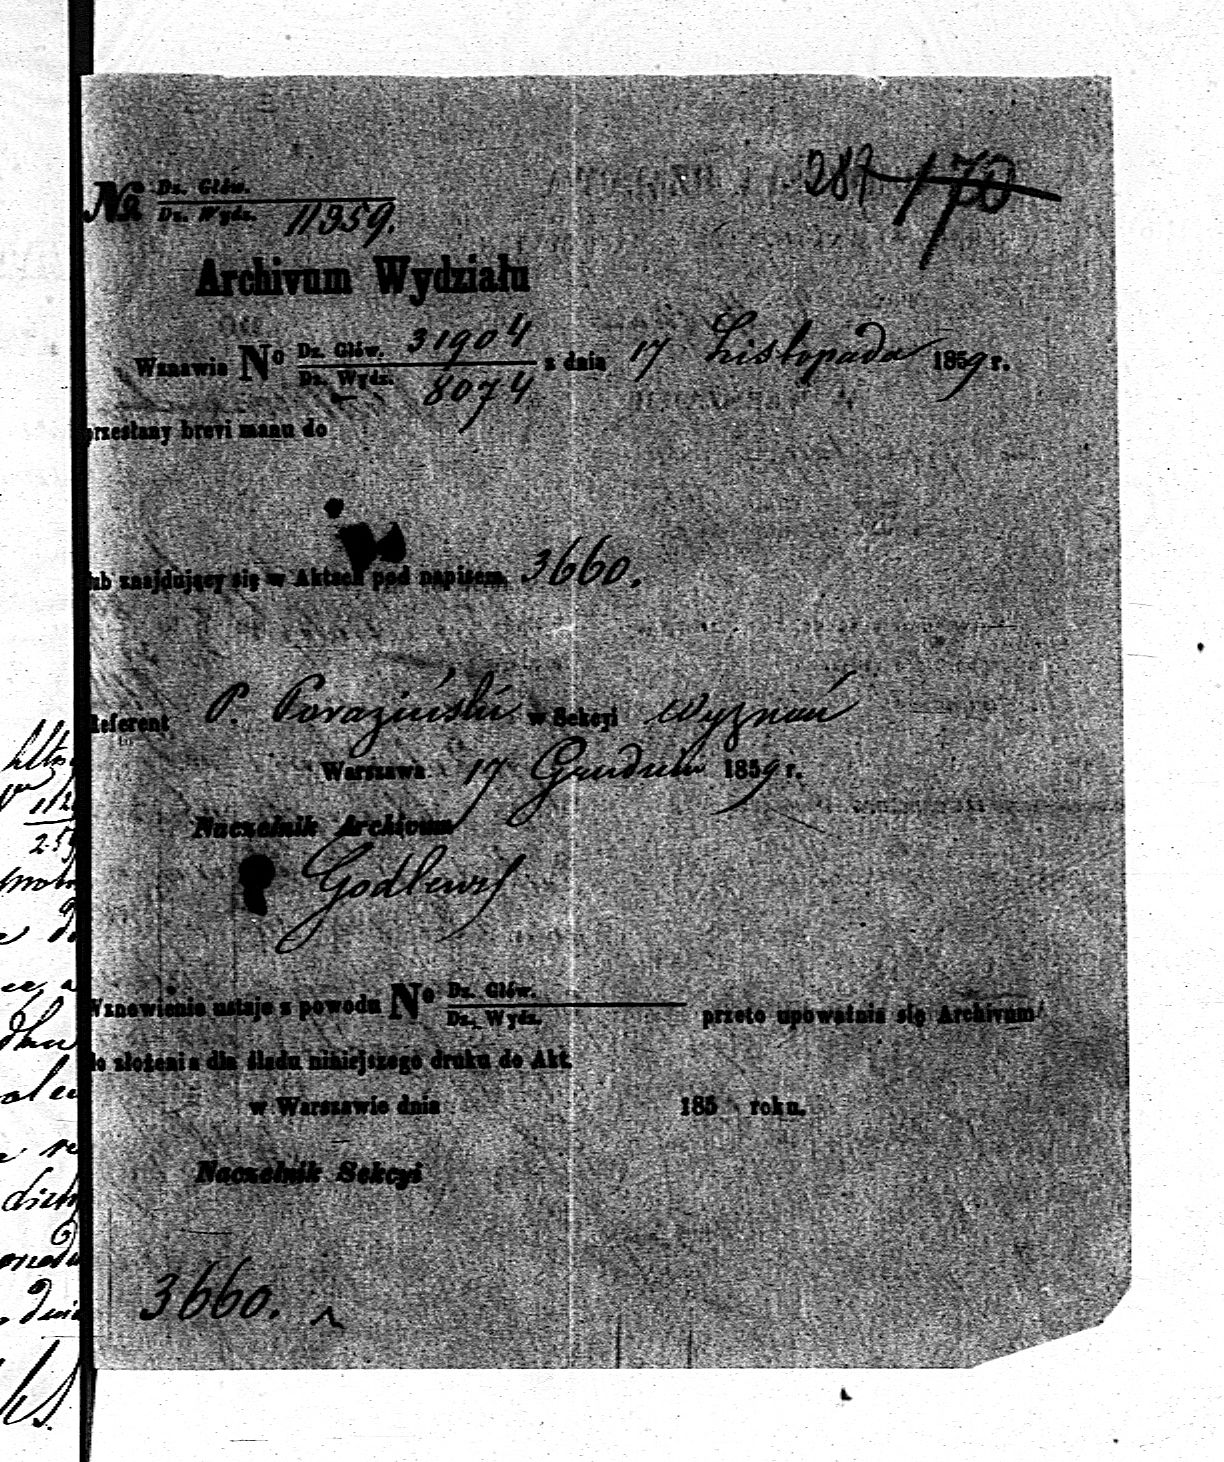 287 170
№ Dz. Głów.
Dz. Wydz. 11359.
Archivum Wydziału
Wznawia No Dz. Głów. 31904 z dnia 17 Listopada 1859 r.
Dz. Wydz. 8074
przesłany brevi manu do
lub znajdujący się w Aktach pod napisem 3660.
Referent P. Poraziński w Sekcyi Wyznań
Warszawa 17 Grudnia 1859 r.
Naczelnik Archivum
Godlewski
Wznowienie ustaje z powodu No Dz. Głów.
Dz. Wydz. przeto upoważnia się Archivum
do złożenia dla śladu niniejszego druku do Akt.
w Warszawie dnia 185 roku.
Naczelnik Sekcyi
3660.